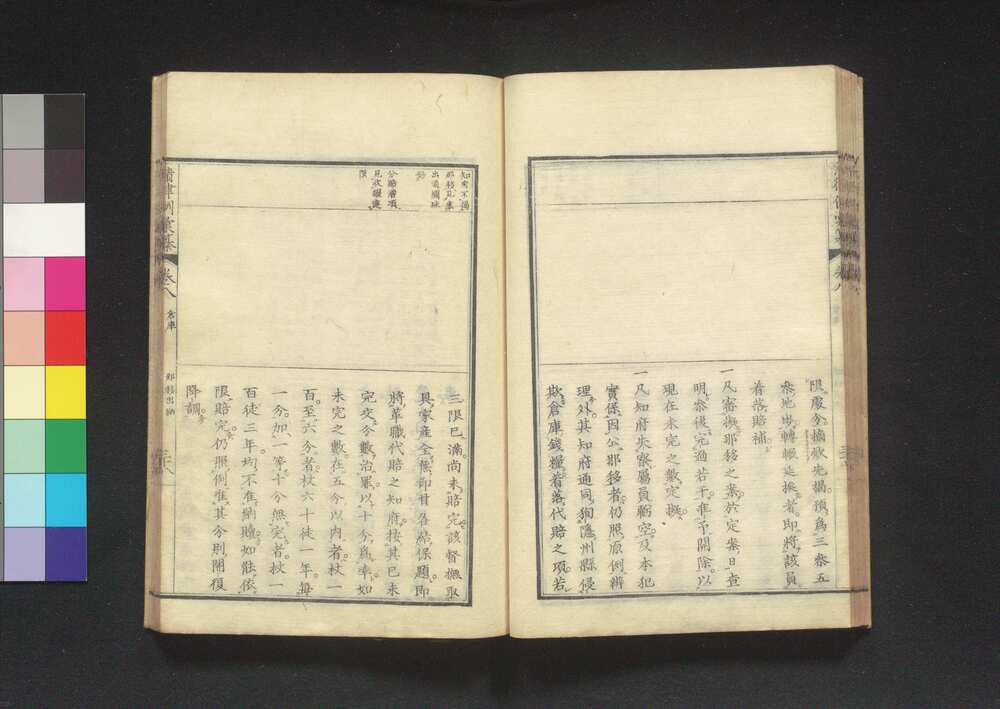 限處分摘欵先揭預爲三叅五
叅地步轉輾延挨者即將該員
着落賠補
一凡審擬那移之案於定案日查
明叅後完過若干准予開除以
現在未完之數定擬
一凡知府失察屬員虧空及本犯
實係因公那移者仍照原例辦
理外其知府通同狥隱州縣侵
欺倉庫錢糧着落代賠之項若
三限已滿尚未賠完該督撫取
具家產全無印甘各結保題即
將革職代賠之知府按其已未
完交分數治罪以十分爲率如
未完之數在五分以內者杖一
百至六分者杖六十徒一年每
一分加一等十分無完者杖一
百徒三年均不准納贖如能依
限賠完仍照例准其分別開復
降調
知府不揭
那移見庫
分賠着項
卷八
倉庫
那移出納